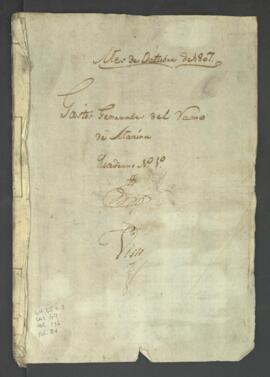 Mes de Octubre de 1807
Gastos Generales del Ramo
de Marina
Quaderno Nº 1º
Visto